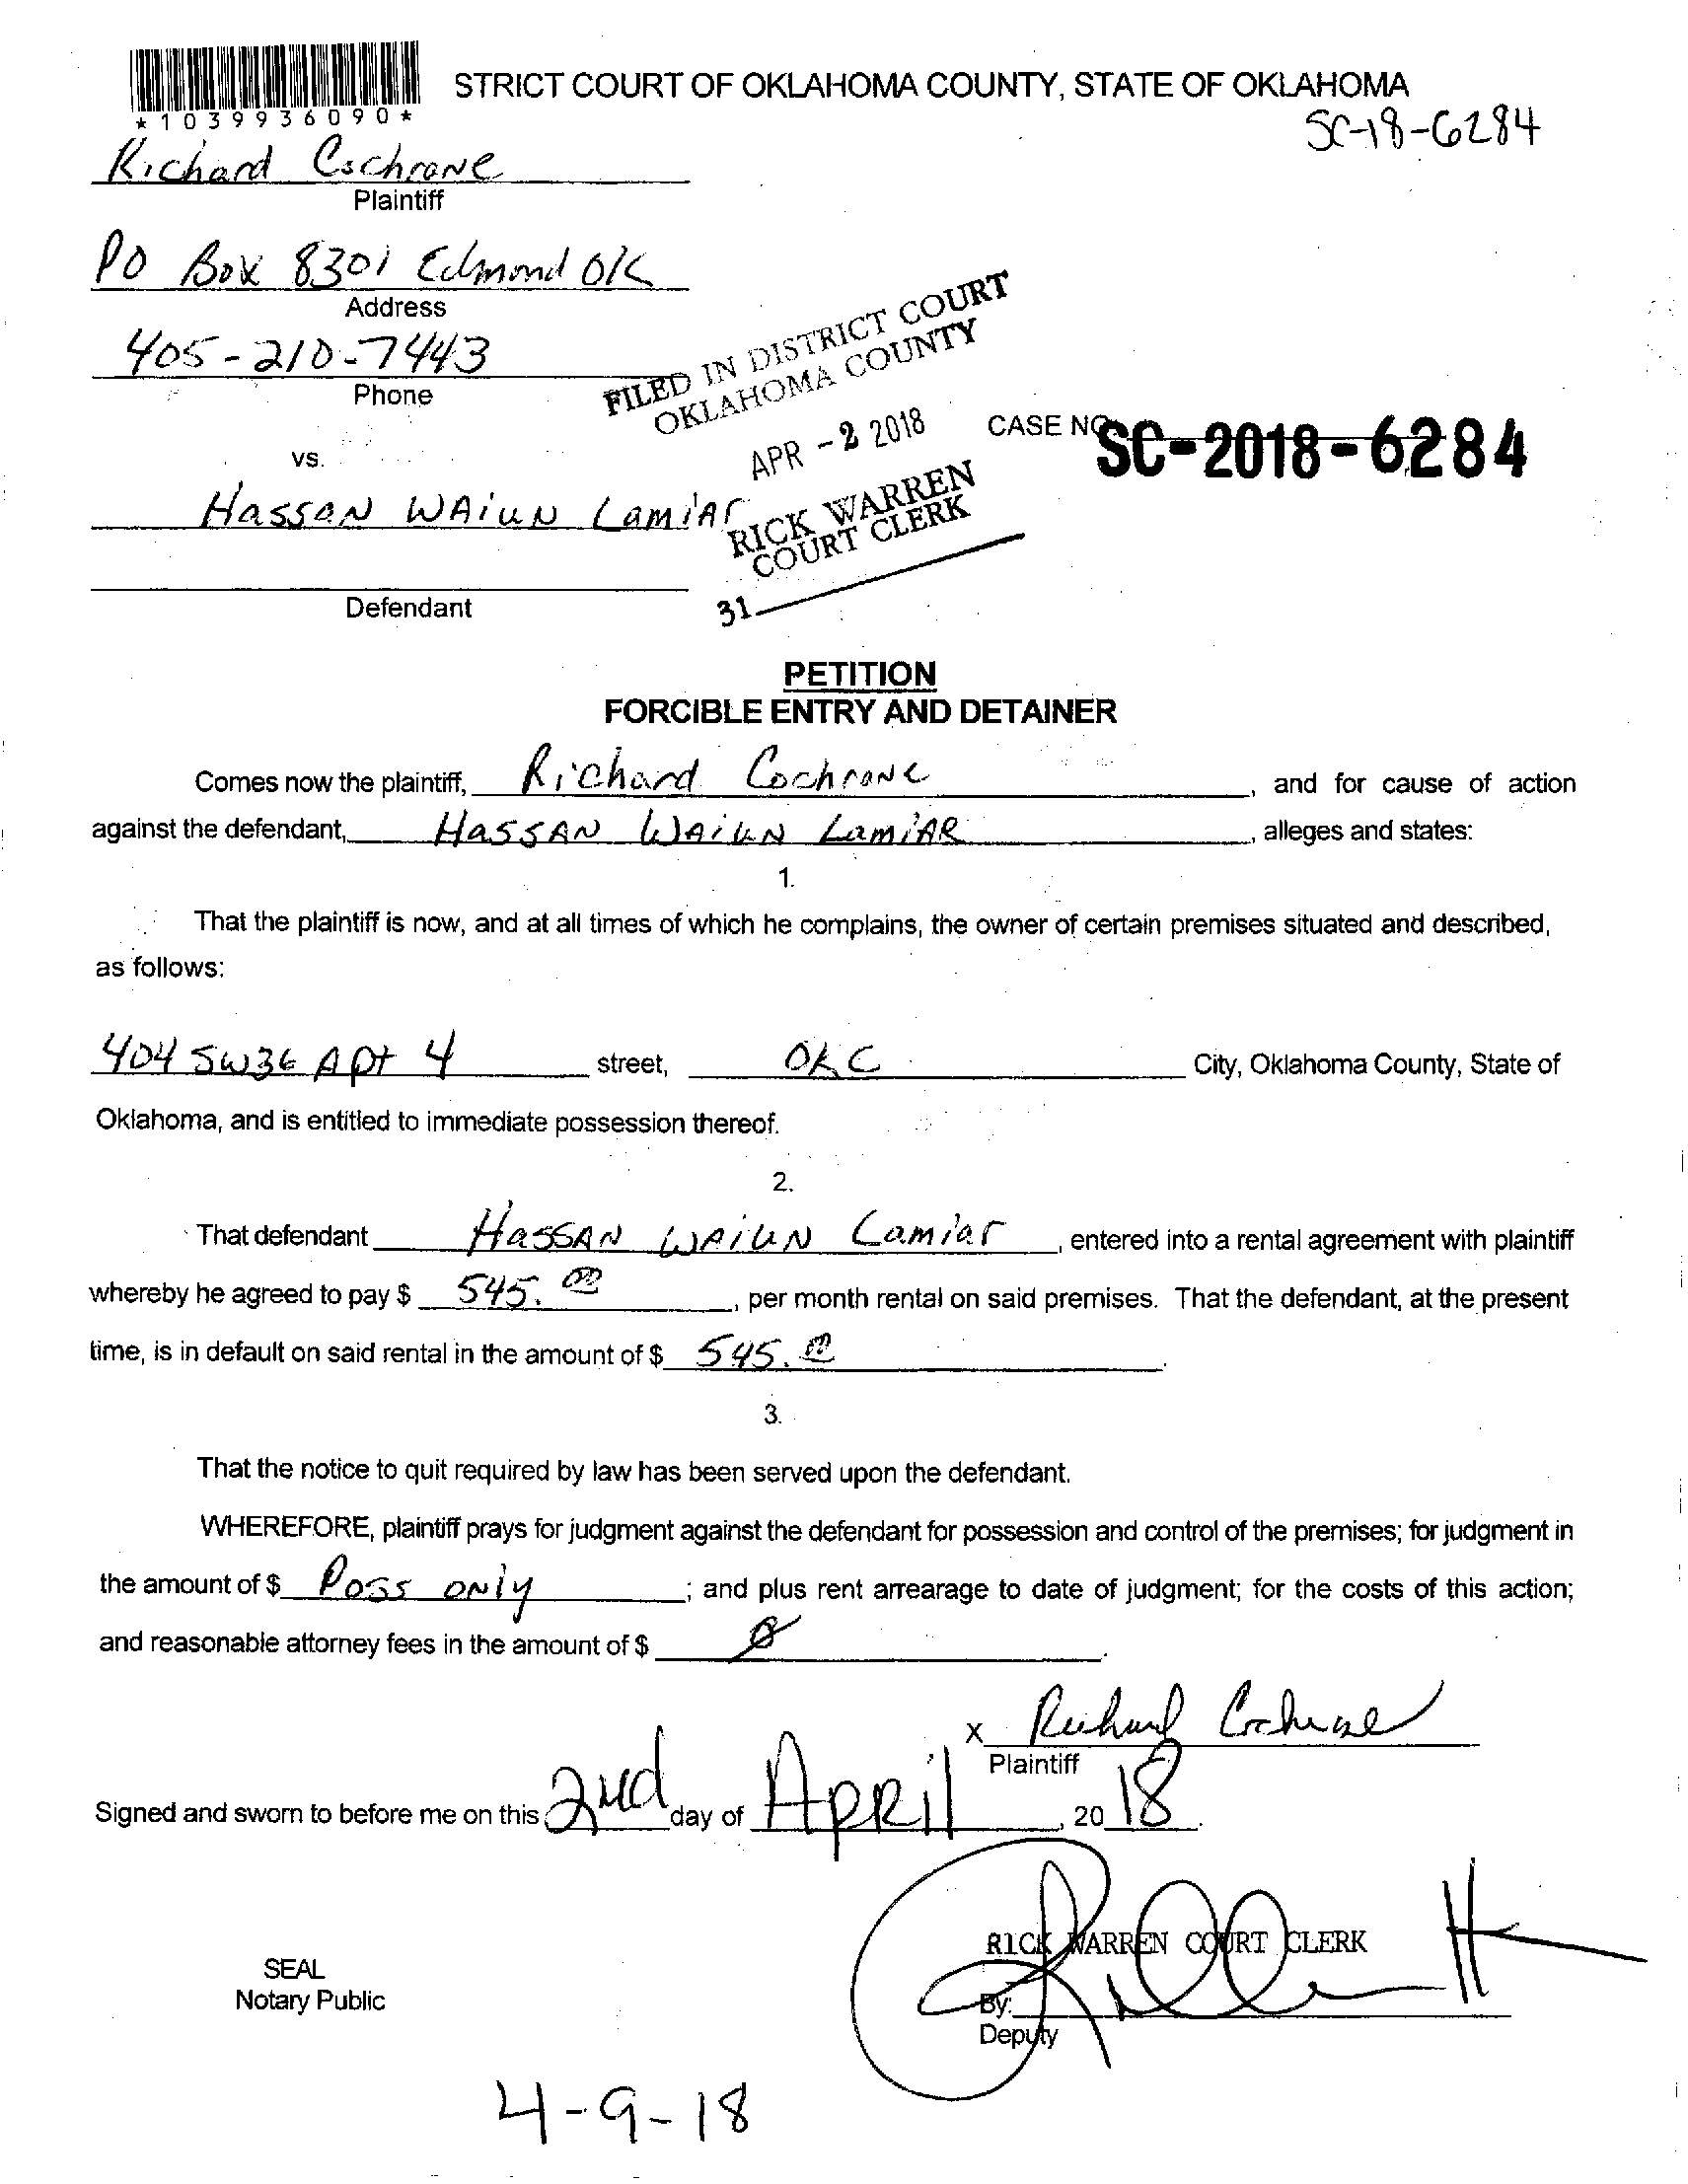 STRICT COURT OF OKLAHOMA COUNTY, STATE OF OKLAHOMA
*1039936090*
SC-18-6284
Richard Cochrane
Plaintiff
PO Box 8301 Edmond OK
Address
405-210-7443
Phone
FILED IN DISTRICT COURT
OKLAHOMA COUNTY
APR -2 2018
RICK WARREN
COURT CLERK
31
CASE NO. SC-2018-6284
vs.
Hassan WAiuN LamiAr
Defendant
PETITION
FORCIBLE ENTRY AND DETAINER
Comes now the plaintiff, Richard Cochrane, and for cause of action
against the defendant, HassAN WAiuN LamiAR, alleges and states:
1.
That the plaintiff is now, and at all times of which he complains, the owner of certain premises situated and described,
as follows:
404 SW36 Apt 4 street, OKC City, Oklahoma County, State of
Oklahoma, and is entitled to immediate possession thereof.
2.
That defendant HassAN WAiuN Lamiar, entered into a rental agreement with plaintiff
whereby he agreed to pay $ 545.00, per month rental on said premises. That the defendant, at the present
time, is in default on said rental in the amount of $ 545.00.
3.
That the notice to quit required by law has been served upon the defendant.
WHEREFORE, plaintiff prays for judgment against the defendant for possession and control of the premises; for judgment in
the amount of $ Poss ONly; and plus rent arrearage to date of judgment; for the costs of this action;
and reasonable attorney fees in the amount of $ 0.
X Richard Cochrane
Plaintiff
Signed and sworn to before me on this 2nd day of April, 2018.
RICK WARREN COURT CLERK
SEAL
Notary Public
By:
Deputy
4-9-18